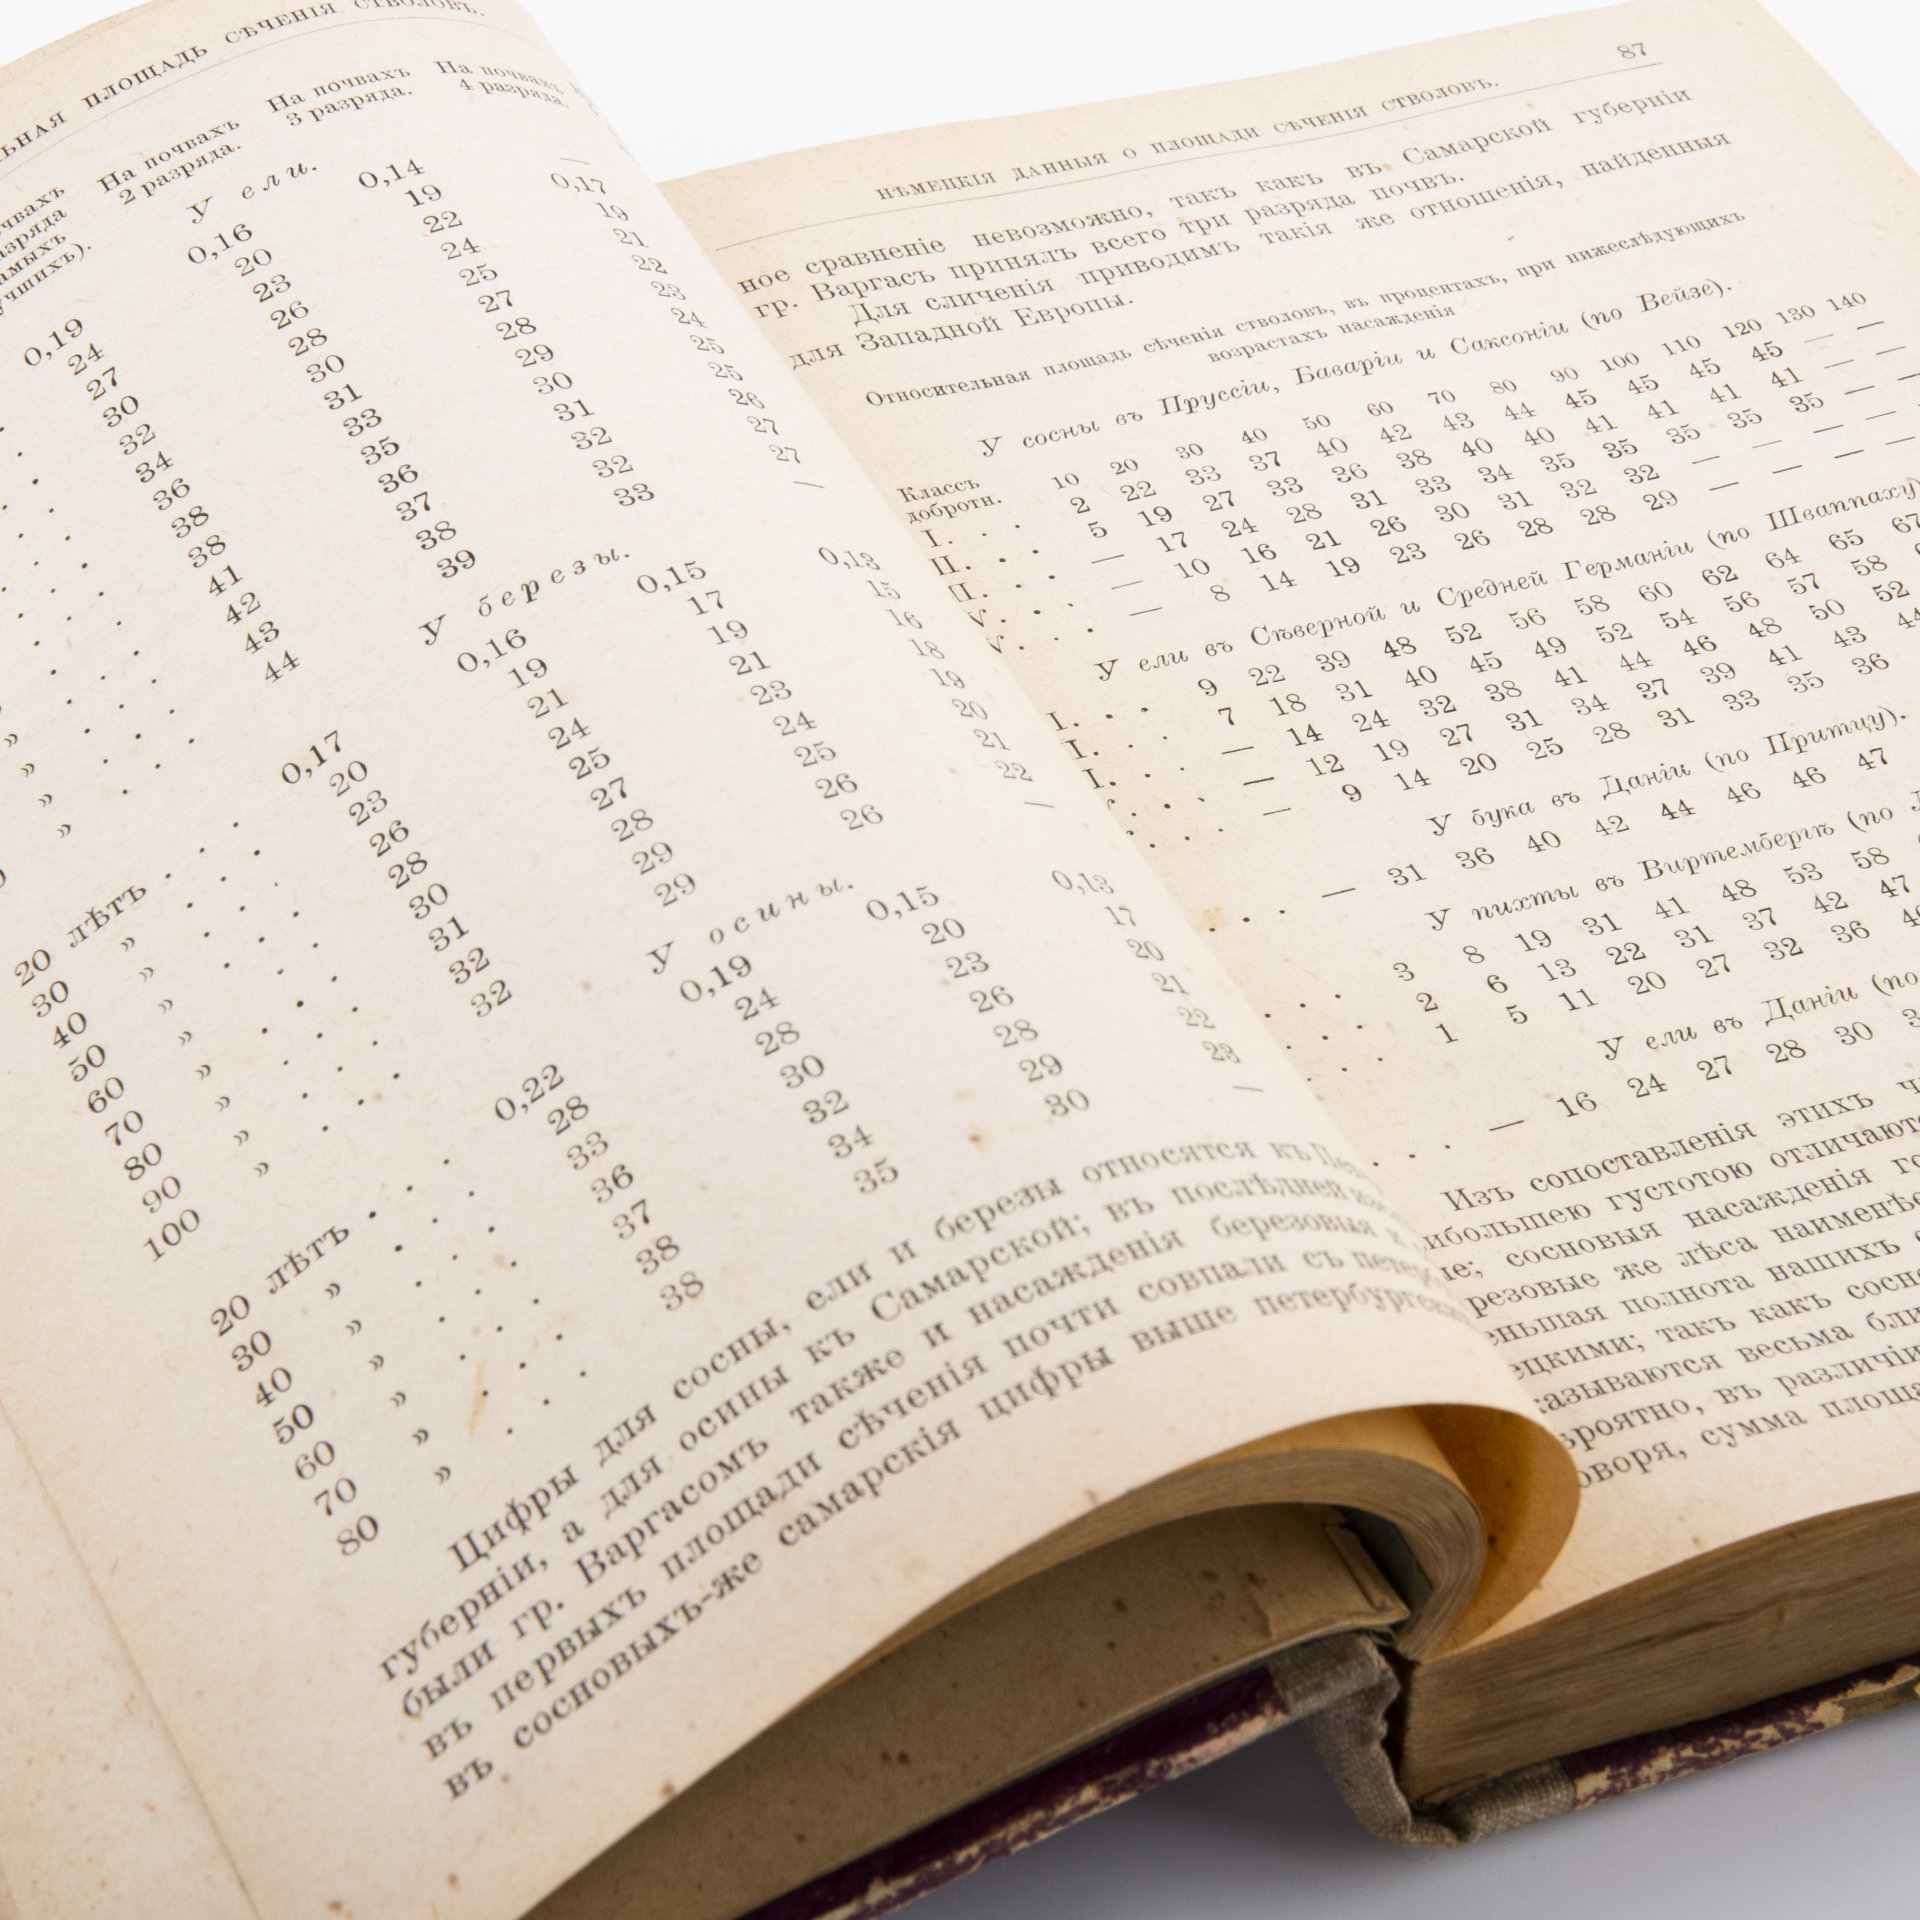 ПЛОЩАДЬ СѢЧЕНІЯ СТВОЛОВЪ.
На почвахъ
2 разряда.
На почвахъ
3 разряда.
На почвахъ
4 разряда.
У ели.
0,19 0,16 0,14 —
24 20 19 0,17
27 23 22 19
30 26 24 21
32 28 25 22
34 30 27 23
36 31 28 24
38 33 29 25
38 35 30 25
41 36 31 26
42 37 32 27
43 38 32 27
44 39 33 —
У березы.
20 лѣтъ . . 0,17 0,16 0,15 0,13
30 » . . 20 19 17 15
40 » . . 23 21 19 16
50 » . . 26 24 21 18
60 » . . 28 25 23 19
70 » . . 30 27 24 20
80 » . . 31 28 25 21
90 » . . 32 29 26 22
100 32 29 26 —
У осины.
20 лѣтъ . . 0,22 0,19 0,15 0,13
30 » . . 28 24 20 17
40 » . . 33 28 23 20
50 » . . 36 30 26 21
60 » . . 37 32 28 22
70 » . . 38 34 29 23
80 » . . 38 35 30 —
Цифры для сосны, ели и березы относятся къ
губерніи, а для осины къ Самарской; въ послѣдней
были гр. Варгасомъ также и насажденія березовыя и
въ первыхъ площади сѣченія почти совпали съ
въ сосновыхъ-же самарскія цифры выше
НѢМЕЦКІЯ ДАННЫЯ О ПЛОЩАДИ СѢЧЕНІЯ СТВОЛОВЪ. 87
ное сравненіе невозможно, такъ какъ въ Самарской губерніи
гр. Варгасъ принялъ всего три разряда почвъ.
Для сличенія приводимъ такія же отношенія, найденныя
для Западной Европы.
Относительная площадь сѣченія стволовъ, въ процентахъ, при нижеслѣдующихъ
возрастахъ насажденія
У сосны въ Пруссіи, Баваріи и Саксоніи (по Вейзе).
Классъ
добротн. 10 20 30 40 50 60 70 80 90 100 110 120 130 140
I. . . 2 22 33 37 40 42 43 44 45 45 45 45 — —
II. . . 5 19 27 33 36 38 40 40 41 41 41 41 — —
. . — 17 24 28 31 33 34 35 35 35 35 35 — —
. . — 10 16 21 26 30 31 32 32 — — — —
. . — 8 14 19 23 26 28 28 29 — — — —
У ели въ Сѣверной и Средней Германіи (по Шваппаху)
. . . 9 22 39 48 52 56 58 60 62 64 65 67
. . . 7 18 31 40 45 49 52 54 56 57 58
. . — 14 24 32 38 41 44 46 48 50 52
. . — 12 19 27 31 34 37 39 41 43 44
. . — 9 14 20 25 28 31 33 35 36
У бука въ Даніи (по Притцу).
. . — 31 36 40 42 44 46 46 47
У пихты въ Виртембергѣ (по
. . . 3 8 19 31 41 48 53 58
. . . 2 6 13 22 31 37 42 47
. . . 1 5 11 20 27 32 36
У ели въ Даніи (по
. . . — 16 24 27 28 30
Изъ сопоставленія этихъ
густотою
сосновыя насажденія
же лѣса
полнота нашихъ
такъ какъ
весьма
въ
сумма